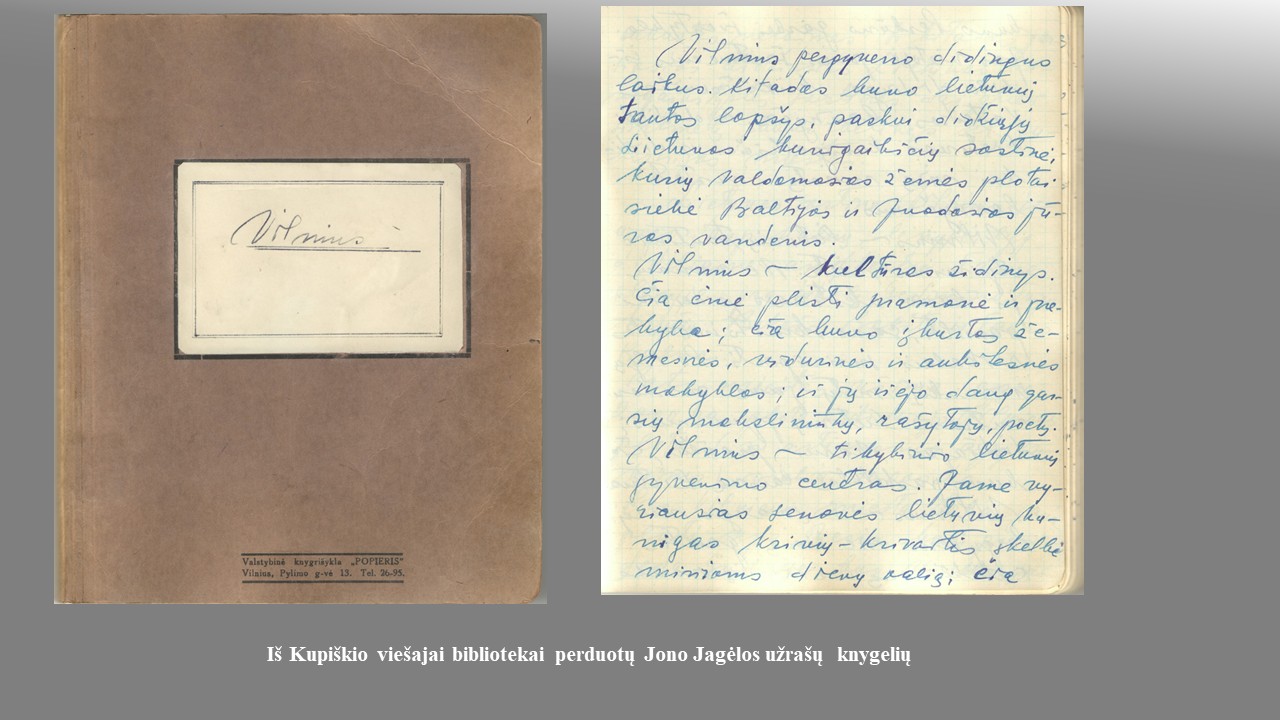 Vilnius
Valstybinė knygrišykla „POPIERIS“
Vilnius, Pylimo g-vė 13. Tel. 26-95.
Vilnius pergyveno didingus
laikus. Kitados buvo lietuvių
tautos lopšys, paskui didžiųjų
Lietuvos kunigaikščių sostinė,
kurių valdomosios žemės plotai
siekė Baltijos ir Juodosios jū-
ros vandenis.
Vilnius – kultūros židinys.
Čia ėmė plisti pramonė ir pre-
kyba; čia buvo įkurtos že-
mesnės, vidurinės ir aukštesnės
mokyklos; iš jų išėjo daug gar-
sių mokslininkų, rašytojų, poetų.
Vilnius – tikybinio lietuvių
gyvenimo centras. Jame vy-
riausias senovės lietuvių ku-
nigas krivių-krivaitis skelbė
minioms dievų valią; čia
Iš Kupiškio viešajai bibliotekai perduotų Jono Jagėlos užrašų knygelių